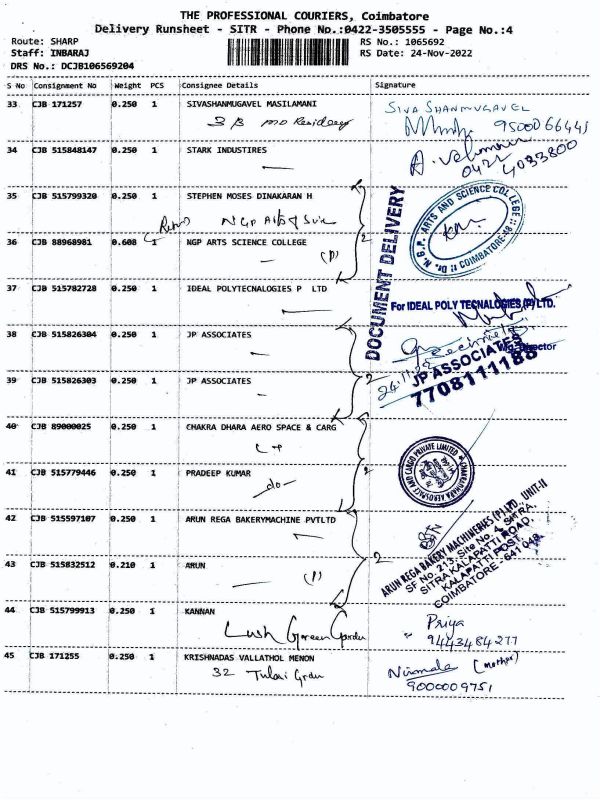 THE PROFESSIONAL COURIERS, Coimbatore
Delivery Runsheet - SITR - Phone No.:0422-3505555 - Page No.:4
Route: SHARP
RS No.: 1065692
Staff: INBARAJ
RS Date: 24-Nov-2022
DRS No.: DCJB106569204
S No Consignment No Weight PCS Consignee Details Signature
33 CJB 171257 0.250 1 SIVASHANMUGAVEL MASILAMANI SIVA SHANMUGAVEL
9500066445
34 CJB 515848147 0.250 1 STARK INDUSTIRES
0422 4033800
35 CJB 515799320 0.250 1 STEPHEN MOSES DINAKARAN H
NGP Arts
DOCUMENT DELIVERY
Dr. N. G. P. ARTS AND SCIENCE COLLEGE :: COIMBATORE-48 ::
36 CJB 88968981 0.608 1 NGP ARTS SCIENCE COLLEGE
(P)
2
37 CJB 515782728 0.250 1 IDEAL POLYTECNALOGIES P LTD
For IDEAL POLY TECNALOGIES (P) LTD.
Director
38 CJB 515826304 0.250 1 JP ASSOCIATES
24.11.22
JP ASSOCIATES
7708111188
39 CJB 515826303 0.250 1 JP ASSOCIATES
2
40 CJB 89000025 0.250 1 CHAKRA DHARA AERO SPACE & CARG
CHAKRADHARA AEROSPACE AND CARGO PRIVATE LIMITED
41 CJB 515779446 0.250 1 PRADEEP KUMAR
-do-
2
42 CJB 515597107 0.250 1 ARUN REGA BAKERYMACHINE PVTLTD
ARUN REGA BAKERY MACHINERIES (P) LTD., UNIT-II
SF No. 213, Site No. 4, SITRA,
SITRA KALAPATTI ROAD,
KALAPATTI POST,
COIMBATORE - 641 048.
43 CJB 515832512 0.210 1 ARUN
(P)
2
44 CJB 515799913 0.250 1 KANNAN
Lush Green Garden
Priya
9443484277
45 CJB 171255 0.250 1 KRISHNADAS VALLATHOL MENON
32 Tulsi Grdn
Nirmala (mother)
9000009751